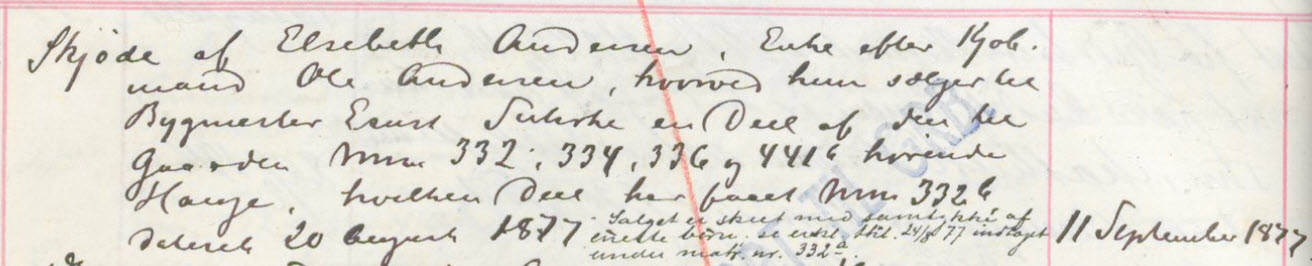 Skjøde af Elsebeth Andersen, Enke efter Kjøb-
mand Ole Andersen, hvorved hun sælger til
Bygmester Ernst en Deel af den til
Gaarden Nrne 332, 334, 336 og 441b hørende
Hauge, hvilken Deel har faaet Nrne 332b
dateret 20 august 1877
Salget er skeet med samtykke af
børn. se erkl. 24/8 77 indtaget
under matr. nr. 332a.
11 September 1877